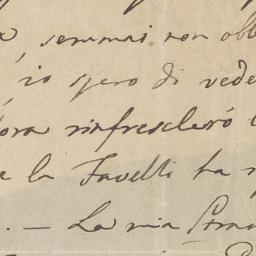 , semmai non obb
io spero di vede
ora rinfrescherò
e la Favelli ha
. — La mia